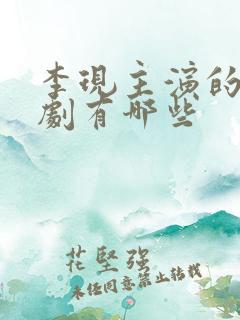 李現主演的
劇有哪些
花堅強
未经同意禁止转载